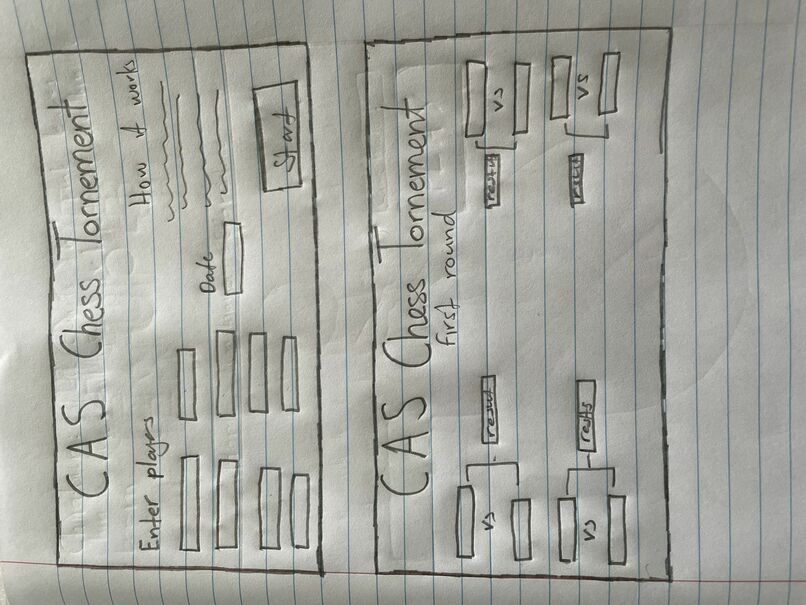 CAS Chess Tornement
Enter players
How it works
Date
Start
CAS Chess Tornement
First round
vs
result
result
vs
vs
rests
result
vs